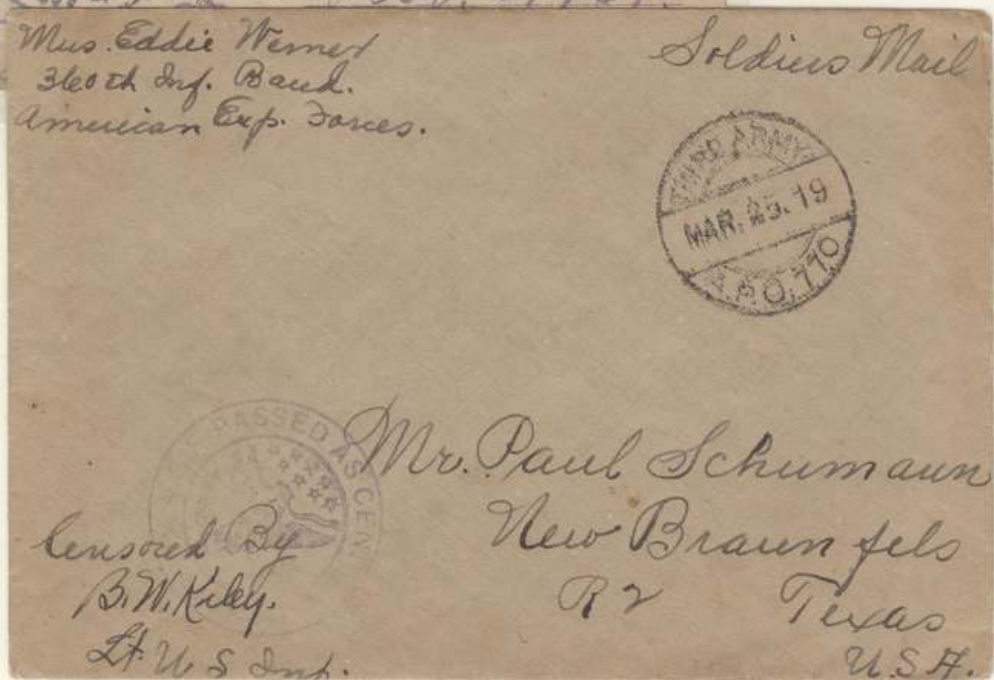 Mus. Eddie Werner
360th Inf. Band.
American Exp. Forces.
Soldiers Mail
THIRD ARMY
MAR. 25. 19
A.P.O. 770
PASSED AS CEN
Mr. Paul Schumann
New Braunfels
R 2 Texas
U.S.A.
Censored By
B.W. Kiley.
Lt. U S Inf.